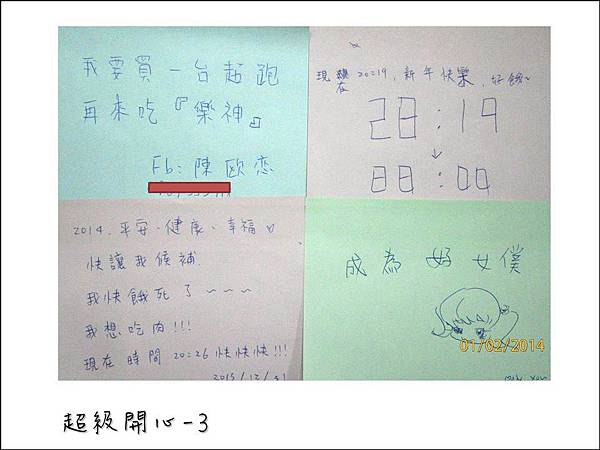 我要買一台超跑
再來吃『樂神』
Fb: 陳欧恋
現在 20:19, 新年快樂, 好餓~
20:19
↓
00:00
2014, 平安、健康、幸福
快讓我候補
我快餓死了~~~
我想吃肉!!!
現在時間 20:26 快快快!!!
2013/12/31
成為好女僕
01/02/2014
超級開心-3